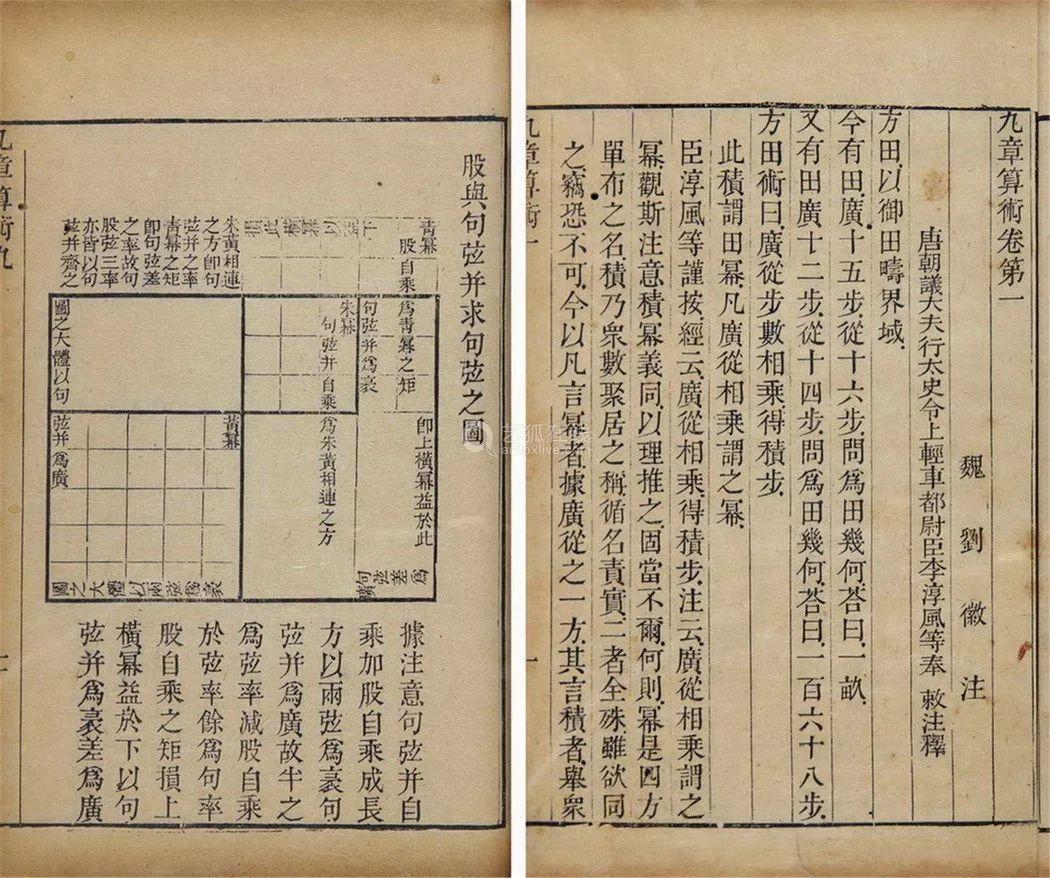 九章算術卷第一
魏劉徽注
唐朝議大夫行太史令上輕車都尉臣李淳風等奉 敕注釋
方田、以御田疇界域、
今有田、廣十五步、從十六步、問爲田幾何、荅曰、一畝、
又有田、廣十二步、從十四步、問爲田幾何、荅曰、一百六十八步、
方田術曰、廣從步數相乘得積步、
此積謂田冪、凡廣從相乘謂之冪、
臣淳風等謹按、經云、廣從相乘得積步、注云、廣從相乘謂之
冪、觀斯注意、積冪義同、以理推之、固當不爾、何則、冪是四方
單布之名、積乃衆數聚居之稱、循名責實、二者全殊、雖欲同
之、竊恐不可、今以凡言冪者、據廣從之一方、其言積者、舉衆
九章算術一
一
股與句弦并求句弦之圖
青冪
股自乘爲青冪之矩
卽上橫冪益於此
句弦差爲廣
句弦并爲袤
朱冪
句弦并自乘爲朱黃相連之方
朱黃相連
之方卽句
弦并之率
青冪之矩
卽句弦差
之率故句
股弦三率
亦皆以句
弦并齊之
圖之大體以句
弦并爲廣
黃冪
圖之大體以兩弦爲袤
據注意句弦并自
乘加股自乘成長
方以兩弦爲袤句
弦并爲廣故半之
爲弦率減股自乘
於弦率餘爲句率
股自乘之矩損上
橫冪益於下以句
弦并爲袤差爲廣
九章算術九